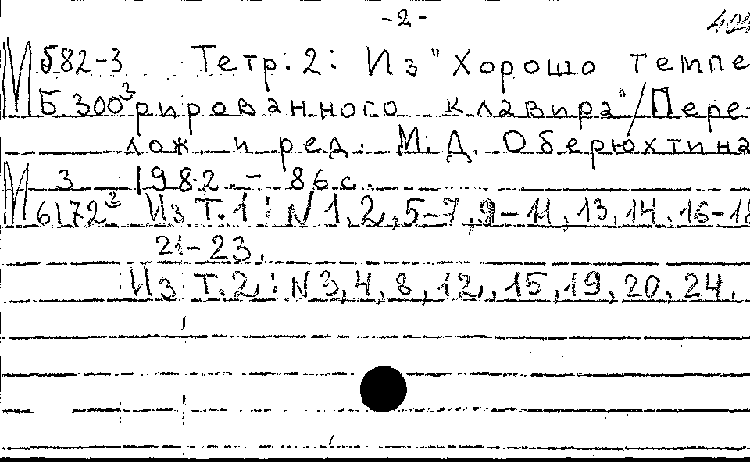 -2-
М 582-3 Тетр. 2: Из "Хорошо темпе
Б 300³ рированного клавира" / Пере-
лож. и ред. М.Д. Оберюхтина
М 3 1982. - 86 с.
6172³ Из Т.1: N 1, 2, 5-7, 9-11, 13, 14, 16-18
21-23.
Из Т.2: N 3, 4, 8, 12, 15, 19, 20, 24.